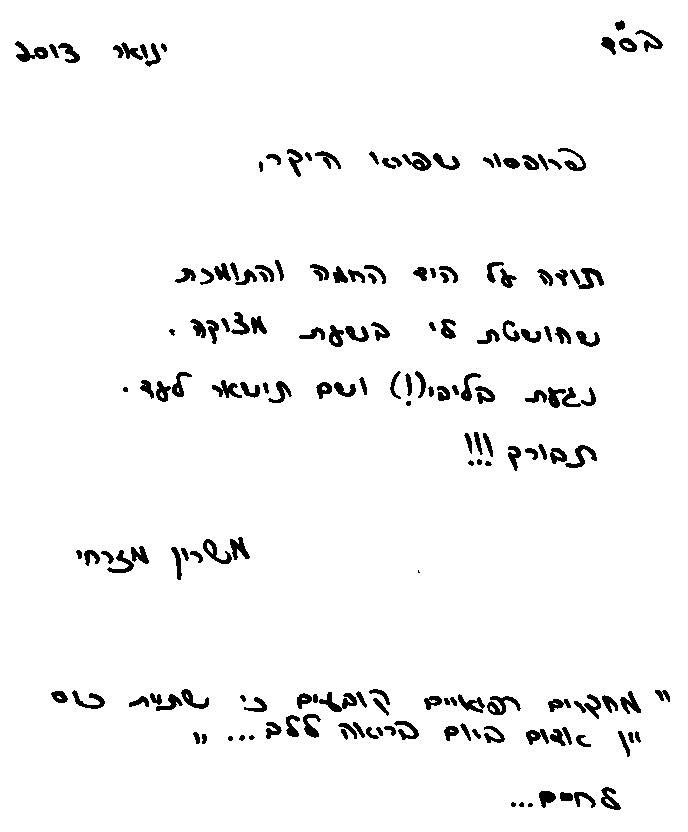 בס"ד
ינואר 2013
פרופסור שפירא היקר,
תודה על היד החמה והתומכת
שהושטת לי בשעת מצוקה.
נגעת בליבי(!) ושם תישאר לעד.
תבורך!!!
משרון מזרחי
"מחקרים רפואיים קובעים כי שתיית כוס
יין אדום ביום בריאה ללב..."
לחיים...